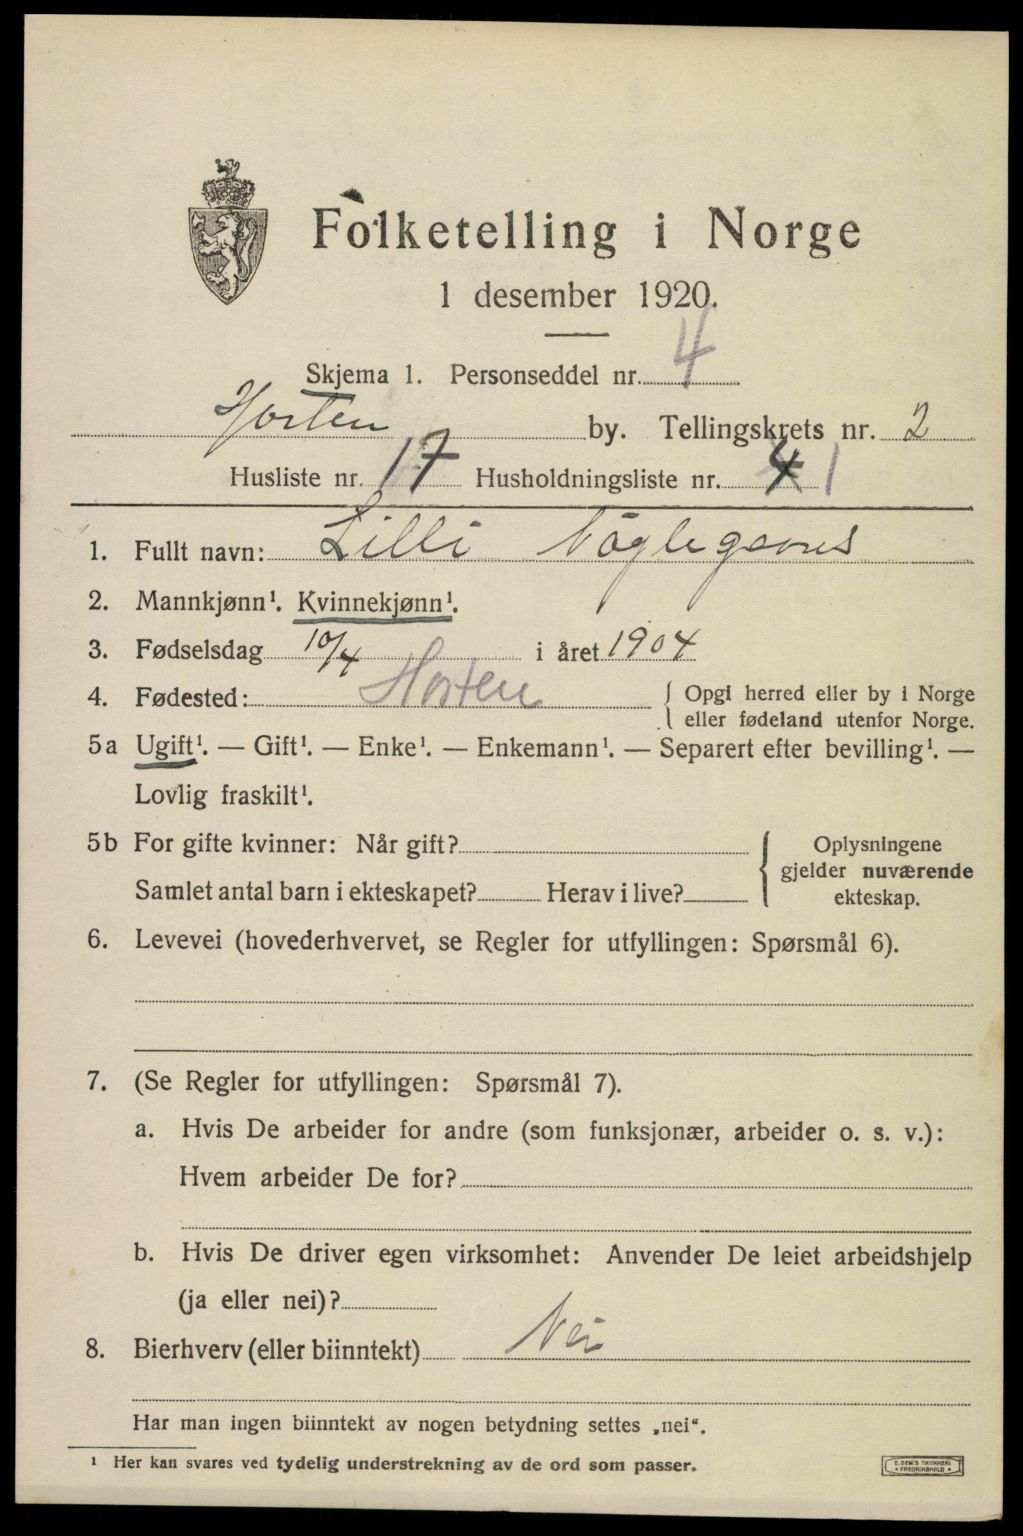 Folketelling i Norge
1 desember 1920.
Skjema 1. Personseddel nr. 4
Horten by. Tellingskrets nr. 2
Husliste nr. 17 Husholdningsliste nr. 4 1
1. Fullt navn: Lilli
2. Mannkjønn¹. Kvinnekjønn¹.
3. Fødselsdag 10/4 i året 1904
4. Fødested: Horten { Opgi herred eller by i Norge
eller fødeland utenfor Norge.
5a Ugift¹. — Gift¹. — Enke¹. — Enkemann¹. — Separert efter bevilling¹. —
Lovlig fraskilt¹.
5b For gifte kvinner: Når gift? { Oplysningene
gjelder nuværende
Samlet antal barn i ekteskapet? Herav i live? ekteskap.
6. Levevei (hovederhvervet, se Regler for utfyllingen: Spørsmål 6).
7. (Se Regler for utfyllingen: Spørsmål 7).
a. Hvis De arbeider for andre (som funksjonær, arbeider o. s. v.):
Hvem arbeider De for?
b. Hvis De driver egen virksomhet: Anvender De leiet arbeidshjelp
(ja eller nei)?
8. Bierhverv (eller biinntekt) Nei
Har man ingen biinntekt av nogen betydning settes „nei".
¹ Her kan svares ved tydelig understrekning av de ord som passer.
E. SEM'S TRYKKERI
• FREDRIKSHALD •